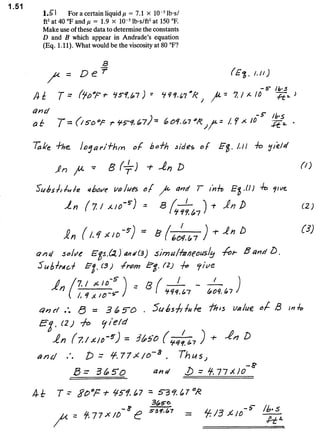 1.51
1.51 For a certain liquid μ = 7.1 × 10⁻⁵ lb·s/
ft² at 40 °F and μ = 1.9 × 10⁻⁵ lb·s/ft² at 150 °F.
Make use of these data to determine the constants
D and B which appear in Andrade's equation
(Eq. 1.11). What would be the viscosity at 80 °F?
μ = D e^(B/T) (Eq. 1.11)
At T = (40°F + 459.67) = 499.67°R, μ = 7.1 x 10⁻⁵ lb·s/ft²,
and
at T = (150°F + 459.67) = 609.67°R, μ = 1.9 x 10⁻⁵ lb·s/ft².
Take the logarithm of both sides of Eq. 1.11 to yield
ln μ = B (1/T) + ln D (1)
Substitute above values of μ and T into Eq.(1) to give
ln (7.1 x 10⁻⁵) = B (1/499.67) + ln D (2)
ln (1.9 x 10⁻⁵) = B (1/609.67) + ln D (3)
and solve Eqs.(2) and (3) simultaneously for B and D.
Subtract Eq. (3) from Eq. (2) to give
ln (7.1 x 10⁻⁵ / 1.9 x 10⁻⁵) = B (1/499.67 - 1/609.67)
and ∴ B = 3650. Substitute this value of B into
Eq. (2) to yield
ln (7.1 x 10⁻⁵) = 3650 (1/499.67) + ln D
and ∴ D = 4.77 x 10⁻⁸. Thus,
B = 3650 and D = 4.77 x 10⁻⁸
At T = 80°F + 459.67 = 539.67 °R
μ = 4.77 x 10⁻⁸ e^(3650/539.67) = 4.13 x 10⁻⁵ lb·s/ft²